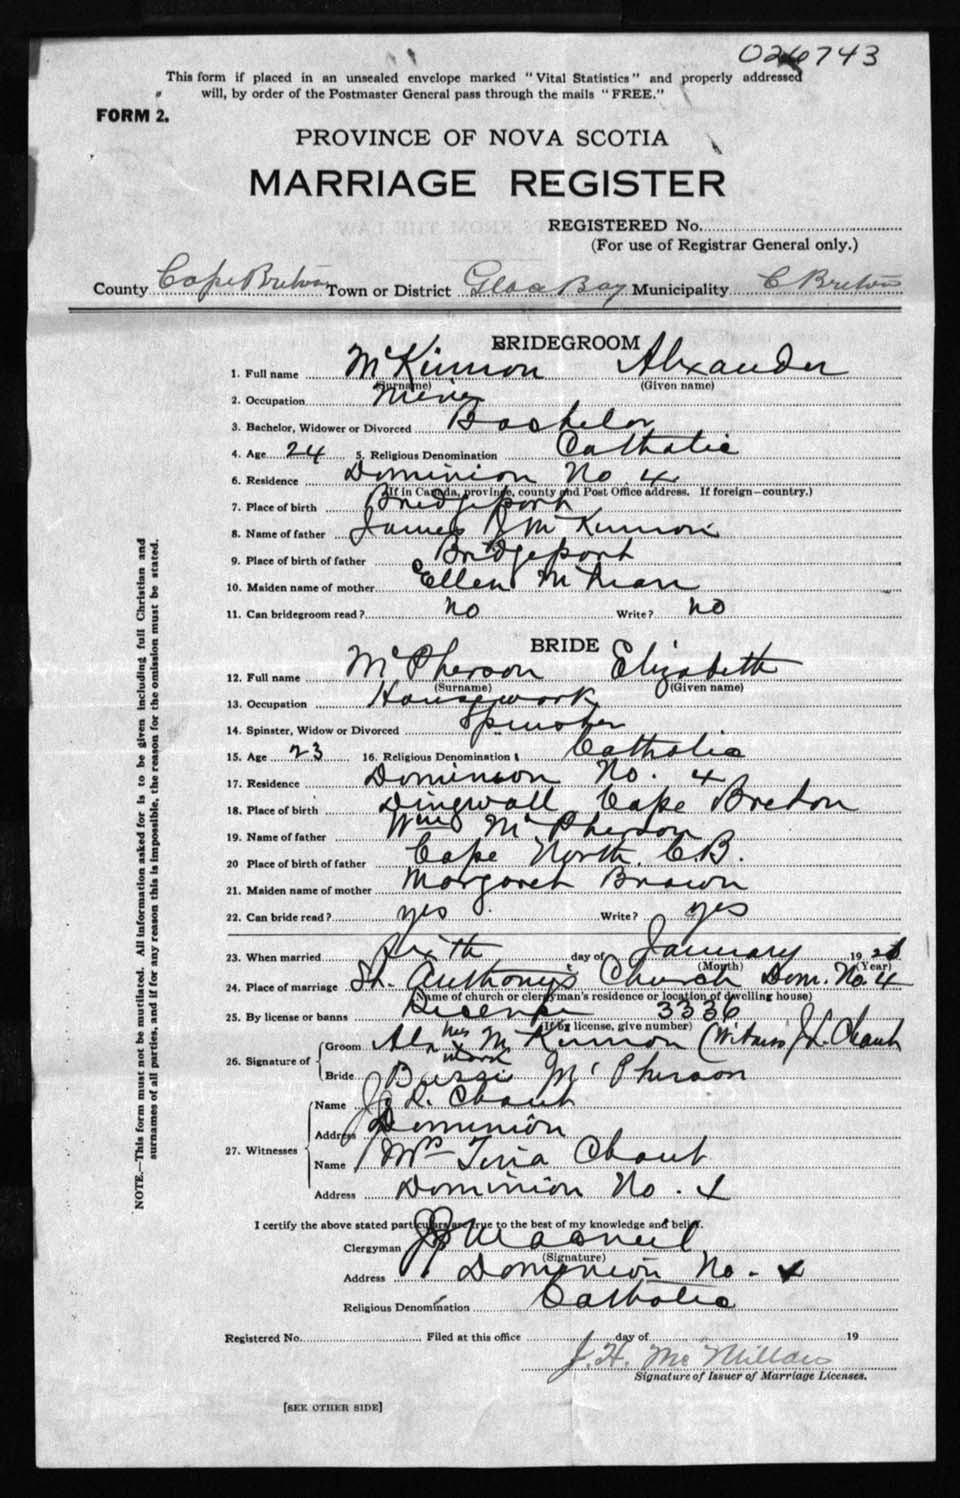 026743
This form if placed in an unsealed envelope marked "Vital Statistics" and properly addressed
will, by order of the Postmaster General pass through the mails "FREE."
FORM 2.
PROVINCE OF NOVA SCOTIA
MARRIAGE REGISTER
REGISTERED No.
(For use of Registrar General only.)
County Cape Breton Town or District Glace Bay Municipality C Breton
BRIDEGROOM
1. Full name McKinnon Alexander
(Surname) (Given name)
2. Occupation Miner
3. Bachelor, Widower or Divorced Bachelor
4. Age 24 5. Religious Denomination Catholic
6. Residence Dominion No. 4
(If in Canada, province, county and Post Office address. If foreign—country.)
7. Place of birth Bridgeport
8. Name of father James McKinnon
9. Place of birth of father Bridgeport
10. Maiden name of mother Ellen
11. Can bridegroom read? no Write? no
BRIDE
12. Full name McPherson Elizabeth
(Surname) (Given name)
13. Occupation Housework
14. Spinster, Widow or Divorced Spinster
15. Age 23 16. Religious Denomination Catholic
17. Residence Dominion No. 4
18. Place of birth Dingwall Cape Breton
19. Name of father Wm McPherson
20 Place of birth of father Cape North C.B.
21. Maiden name of mother Margaret Brown
22. Can bride read? yes Write? yes
23. When married Sixth day of January 19
(Month) (Year)
24. Place of marriage St. Anthony's Church Dom. No. 4
(Name of church or clergyman's residence or location of dwelling house)
25. By license or banns License 3336
(If by license, give number)
26. Signature of Groom Alx his mark McKinnon (Witness J L.
Bride Bessie McPherson
27. Witnesses
Name
Address Dominion
Name Mrs Tina
Address Dominion No. 4
I certify the above stated particulars are true to the best of my knowledge and belief.
Clergyman MacNeil
(Signature)
Address Dominion No. 4
Religious Denomination Catholic
Registered No. Filed at this office day of 19
J. H. McMillan
Signature of Issuer of Marriage Licenses.
[SEE OTHER SIDE]
NOTE.—This form must not be mutilated. All information asked for is to be given including full Christian and
surnames of all parties, and if for any reason this is impossible, the reason for the omission must be stated.